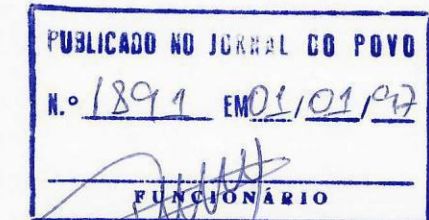 PUBLICADO NO JORNAL DO POVO
N.º 1891 EM 01/01/97
FUNCIONÁRIO